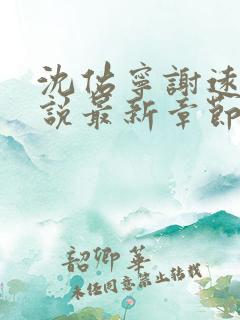 沈佑寧謝遠
說最新章節
韶卿華
未經同意禁止轉載